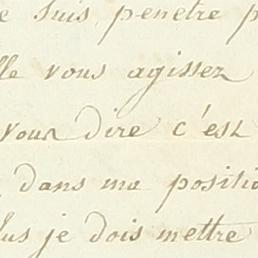 suis penetre p
lle vous agissez
vous dire c'est
dans ma positio
lus je dois mettre